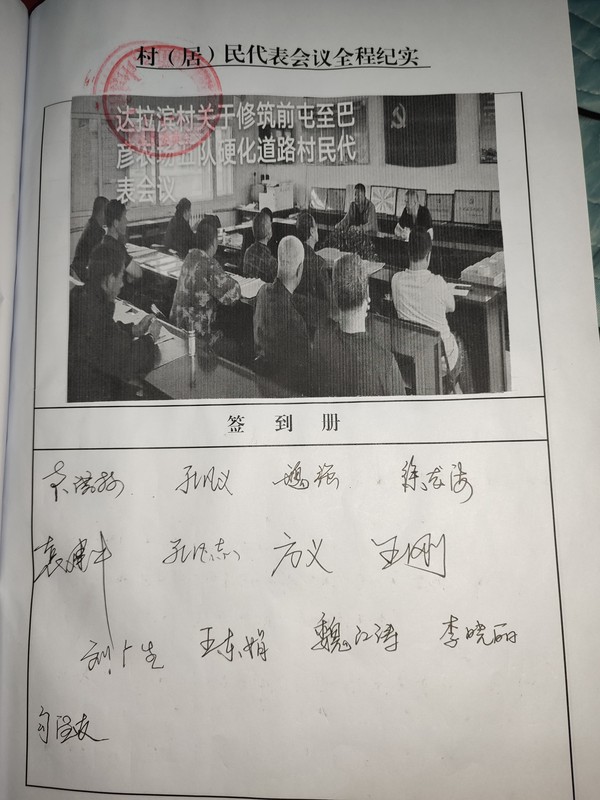 村（居）民代表会议全程纪实
达拉滨村关于修筑前屯至巴
彦农场五队硬化道路村民代
表会议
签 到 册
孔凡义 冯强 徐友海
袁建华 孔凡志 方义 王刚
刘广生 王东娟 魏江涛 李晓丽